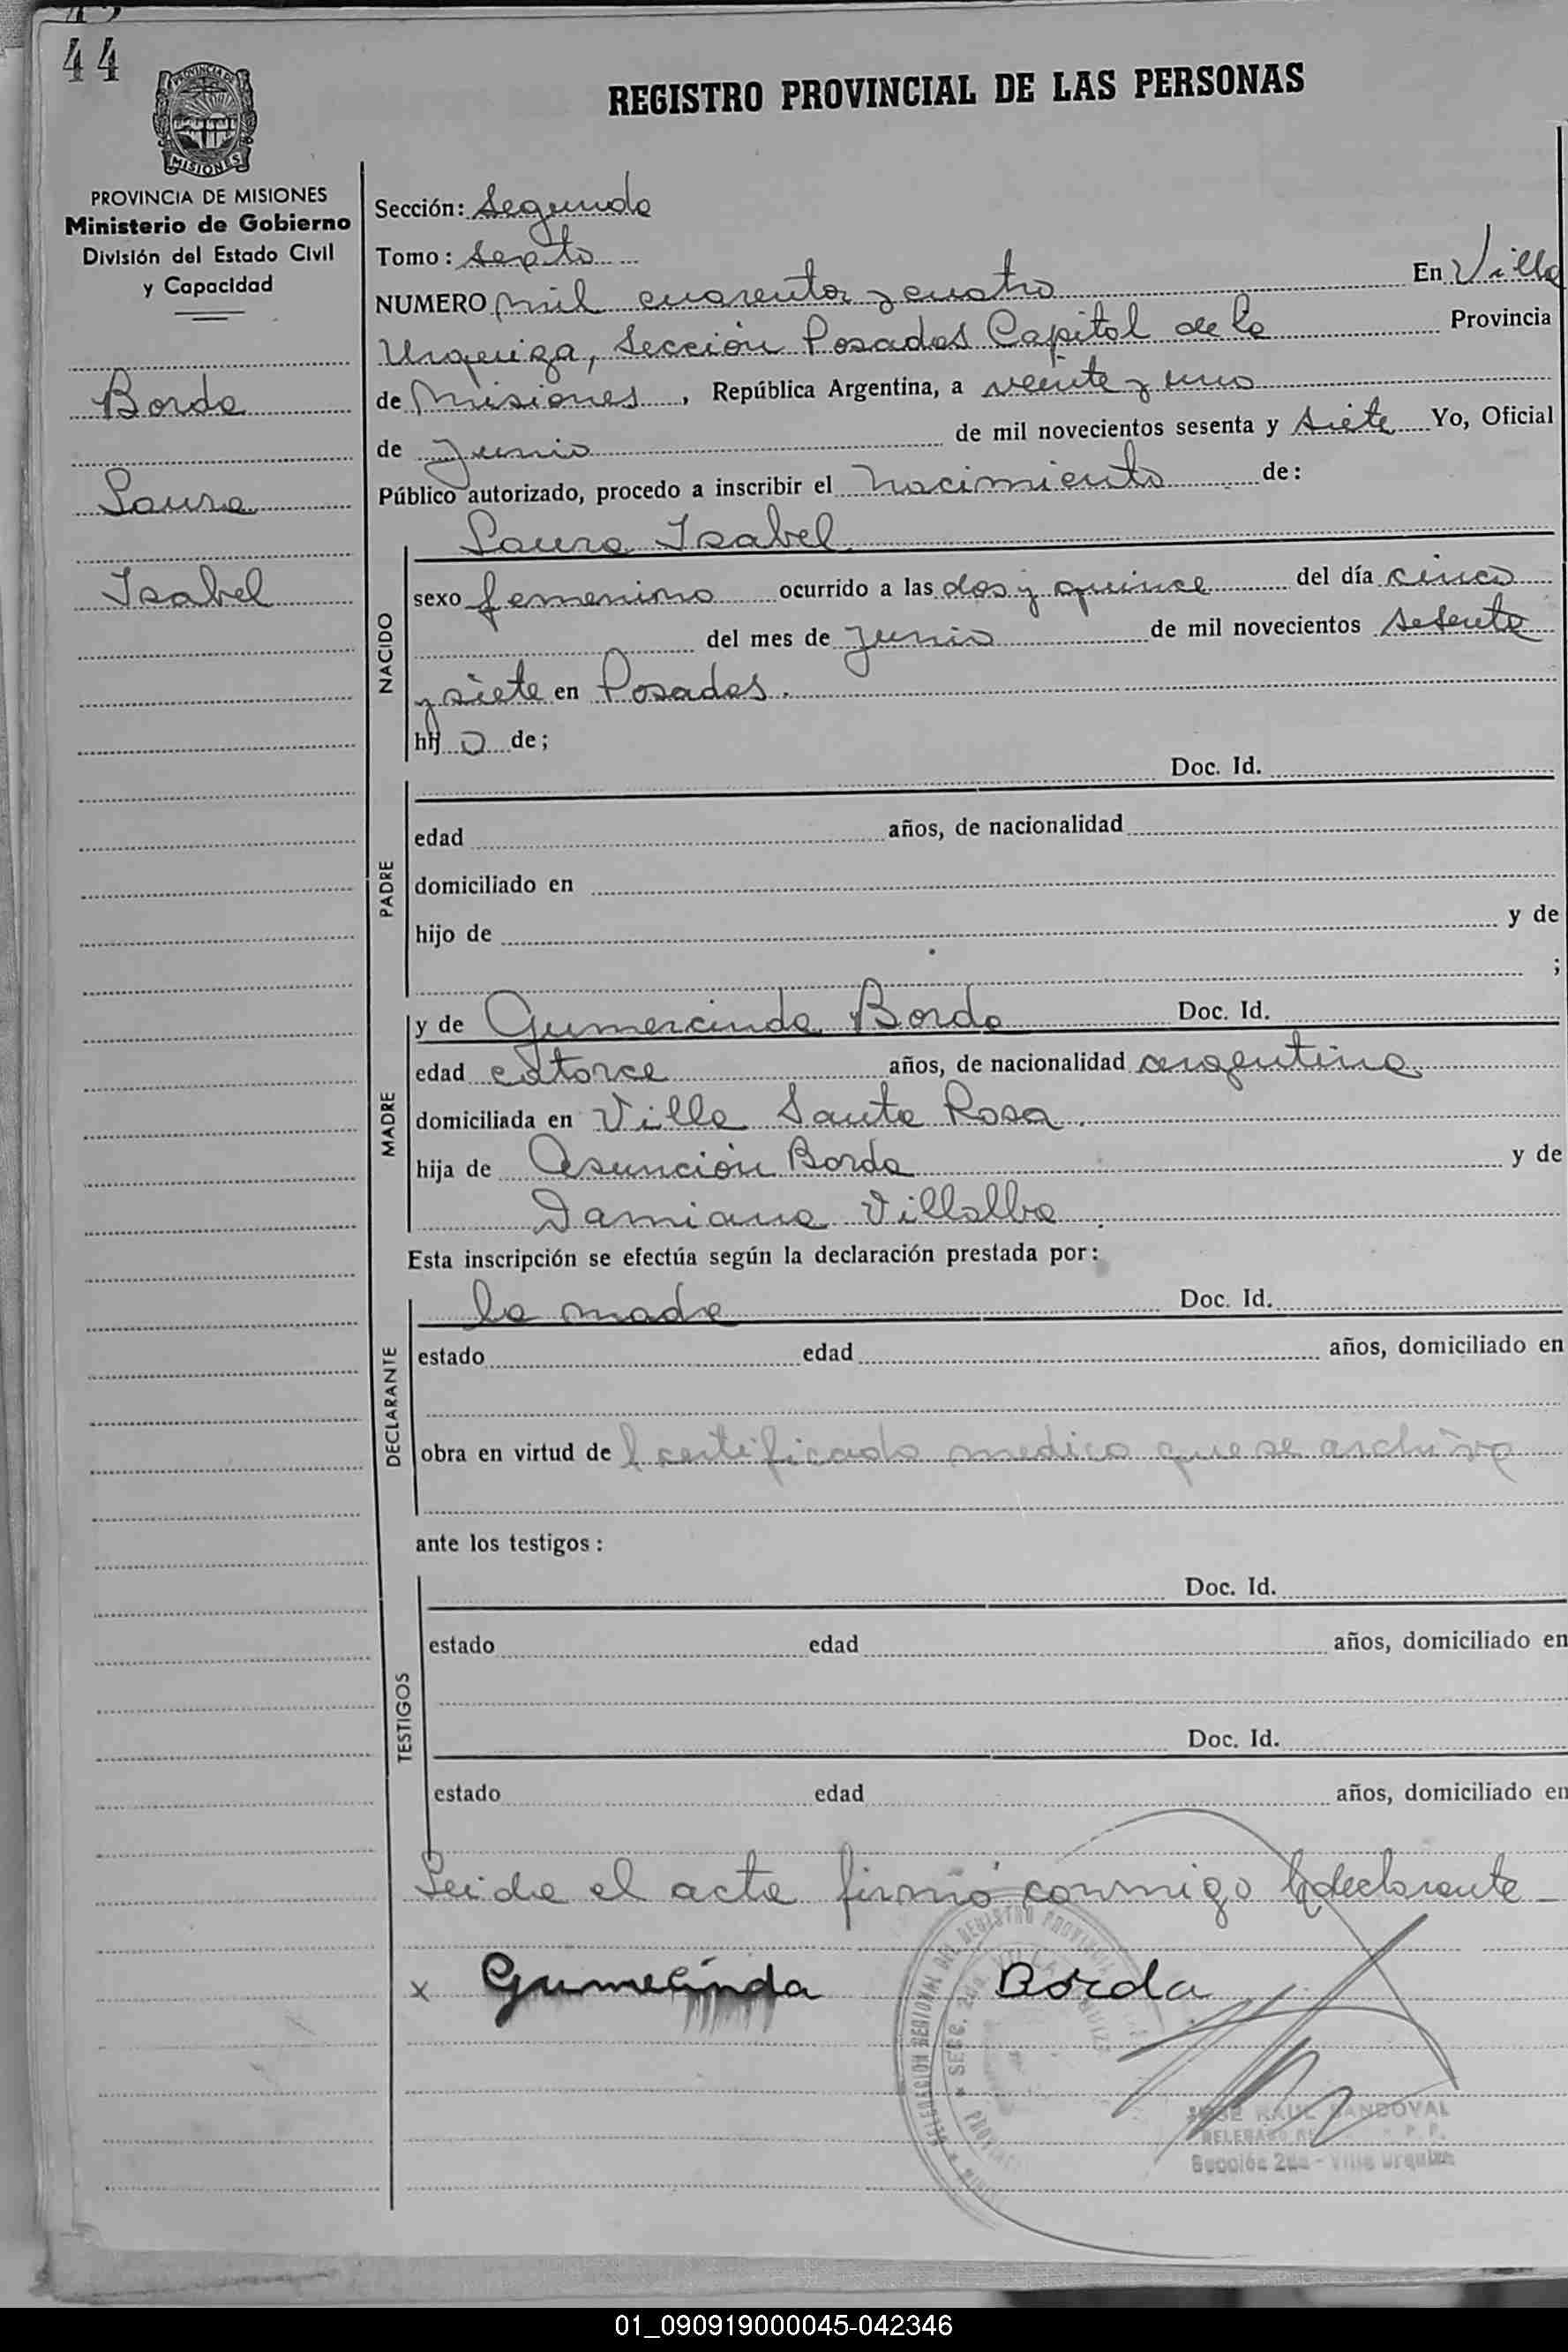 44
REGISTRO PROVINCIAL DE LAS PERSONAS
PROVINCIA DE
MISIONES
PROVINCIA DE MISIONES
Ministerio de Gobierno
División del Estado Civil
y Capacidad
Borda
Laura
Isabel
Sección: Segunda
Tomo: sexto
NUMERO mil cuarenta y cuatro En Villa
Urquiza, Sección Posadas Capital de la Provincia
de Misiones, República Argentina, a veinte y uno
de Junio de mil novecientos sesenta y siete Yo, Oficial
Público autorizado, procedo a inscribir el nacimiento de:
Laura Isabel
NACIDO
sexo femenino ocurrido a las dos y quince del día cinco
del mes de Junio de mil novecientos sesenta
y siete en Posadas.
hij a de;
PADRE
Doc. Id.
edad años, de nacionalidad
domiciliado en
hijo de y de
;
MADRE
y de Gumercinda Borda Doc. Id.
edad catorce años, de nacionalidad argentina
domiciliada en Villa Santa Rosa.
hija de Asunción Borda y de
Damiana Villalba.
Esta inscripción se efectúa según la declaración prestada por:
DECLARANTE
la madre Doc. Id.
estado edad años, domiciliado en
obra en virtud de l certificado medico que se archiva
ante los testigos:
TESTIGOS
Doc. Id.
estado edad años, domiciliado en
Doc. Id.
estado edad años, domiciliado en
Leida el acta firmó conmigo la declarante
x Gumercinda Borda
JOSE RAUL SANDOVAL
Sección 2da - Villa Urquiza
01_090919000045-042346